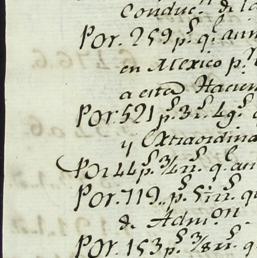 Conduc.n de la
Por. 259 p.s q.e
en Mexico p.r
a esta Hacien
Por. 521 p.s 3 r.s 4 g.s
y Extraordina
Por 44 p.s 3/4 r.s q.e
Por. 719,, p.s 5 r.s q
de Admon.
Por. 153 p.s 7/8 r.s q